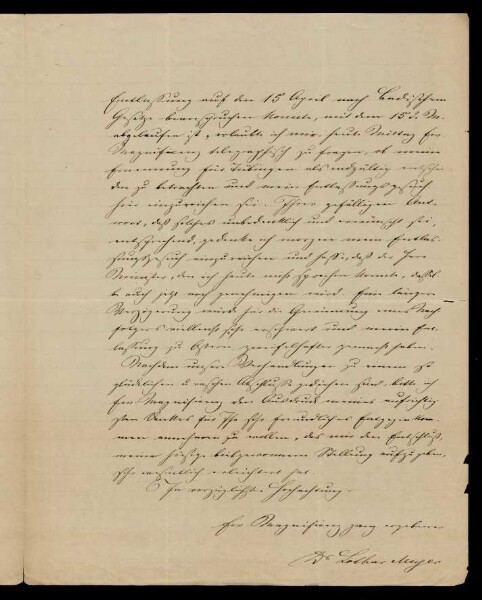 Entlassung auf den 15 April nach Badischem
Gesetze beanspruchen konnte, mit dem 15 d. M.
abgelaufen ist, erlaubte ich mir, heute Mittag Ew.
Magnificenz telegraphisch zu fragen, ob meine
Ernennung für Tübingen als endgültig entschie
den zu betrachten und mein Entlassungsgesuch
hier einzureichen sei. Ihrer gefälligen Ant-
wort, daß solches unbedenklich und erwünscht sei,
entsprechend, gedenke ich morgen mein Entlas-
sungsgesuch einzureichen und hoffe, daß der Herr
Minister, den ich heute nicht sprechen konnte, dassel-
be auch jetzt noch genehmigen wird. Eine längere
Verzögerung würde hier die Gewinnung eines Nach-
folgers vielleicht sehr erschwert und meine Ent-
lassung zu Ostern zweifelhafter gemacht haben.
Nachdem unsere Verhandlungen zu einem so
glücklichen u. raschen Abschlusse gediehen sind, bitte ich
Ew. Magnificenz den Ausdruck meines aufrichtig-
sten Dankes für Ihr sehr freundliches Entgegenkom-
men annehmen zu wollen, das mir den Entschluß,
meine hiesige liebgewonnene Stellung aufzugeben,
sehr wesentlich erleichtert hat.
In vorzüglichster Hochachtung
Ew Magnificenz ganz ergebener
Dr Lothar Meyer